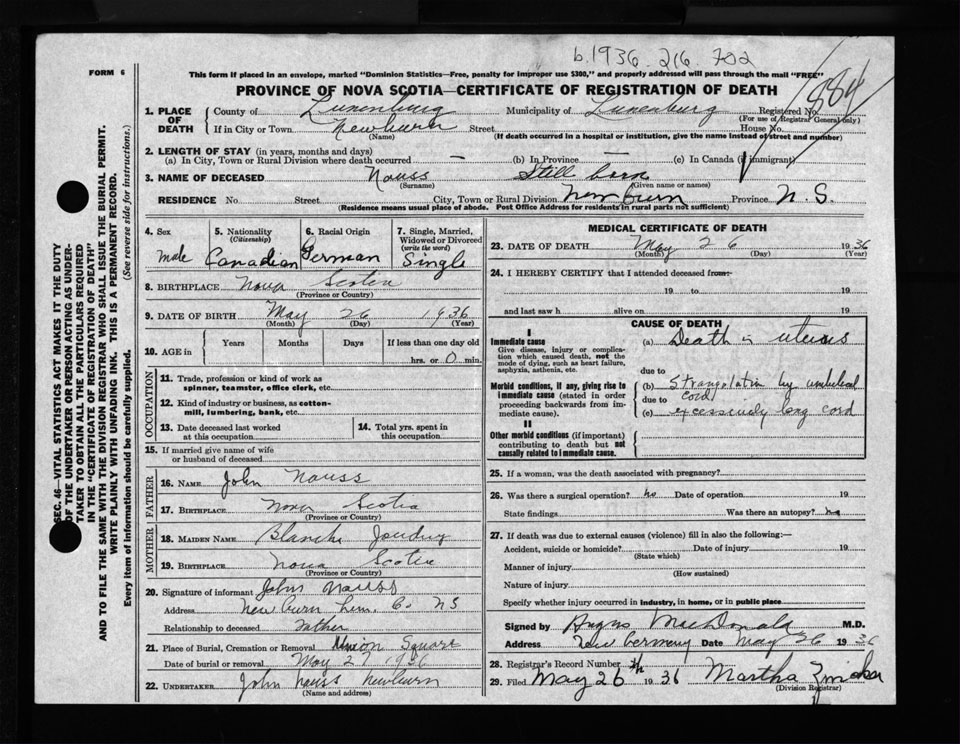 b.1936 216 702
FORM 6
This form if placed in an envelope, marked "Dominion Statistics—Free, penalty for improper use $300," and properly addressed will pass through the mail "FREE"
884
PROVINCE OF NOVA SCOTIA—CERTIFICATE OF REGISTRATION OF DEATH
SEC. 46—VITAL STATISTICS ACT MAKES IT THE DUTY
OF THE UNDERTAKER OR PERSON ACTING AS UNDER-
TAKER TO OBTAIN ALL THE PARTICULARS REQUIRED
IN THE "CERTIFICATE OF REGISTRATION OF DEATH"
AND TO FILE THE SAME WITH THE DIVISION REGISTRAR WHO SHALL ISSUE THE BURIAL PERMIT.
WRITE PLAINLY WITH UNFADING INK. THIS IS A PERMANENT RECORD.
Every item of information should be carefully supplied. (See reverse side for instructions.)
1. PLACE OF DEATH
County of Lunenburg Municipality of Lunenburg Registered No.
(For use of Registrar General only)
If in City or Town Newburn Street House No.
(Name) (If death occurred in a hospital or institution, give the name instead of street and number)
2. LENGTH OF STAY (in years, months and days)
(a) In City, Town or Rural Division where death occurred — (b) In Province — (c) In Canada (if immigrant)
3. NAME OF DECEASED Nauss Still born
(Surname) (Given name or names)
RESIDENCE No. Street City, Town or Rural Division Newburn Province N. S.
(Residence means usual place of abode. Post Office Address for residents in rural parts not sufficient)
4. Sex
male
5. Nationality
(Citizenship)
Canadian
6. Racial Origin
German
7. Single, Married,
Widowed or Divorced
(write the word)
Single
8. BIRTHPLACE Nova Scotia
(Province or Country)
9. DATE OF BIRTH May 26 1936
(Month) (Day) (Year)
10. AGE in
Years Months Days If less than one day old
hrs. or 0 min.
OCCUPATION
11. Trade, profession or kind of work as
spinner, teamster, office clerk, etc.
12. Kind of industry or business, as cotton-
mill, lumbering, bank, etc.
13. Date deceased last worked
at this occupation
14. Total yrs. spent in
this occupation
15. If married give name of wife
or husband of deceased
FATHER
16. NAME John Nauss
17. BIRTHPLACE Nova Scotia
(Province or Country)
MOTHER
18. MAIDEN NAME Blanche Joudrey
19. BIRTHPLACE Nova Scotia
(Province or Country)
20. Signature of informant John Nauss
Address Newburn Lun. Co. NS
Relationship to deceased Father
21. Place of Burial, Cremation or Removal Union Square
Date of burial or removal May 27 1936
22. UNDERTAKER John Nauss Newburn
(Name and address)
MEDICAL CERTIFICATE OF DEATH
23. DATE OF DEATH May 26 1936
(Month) (Day) (Year)
24. I HEREBY CERTIFY that I attended deceased from:
19 to 19
and last saw h alive on 19
CAUSE OF DEATH
I
Immediate cause
Give disease, injury or complica-
tion which caused death, not the
mode of dying, such as heart failure,
asphyxia, asthenia, etc.
(a) Death in uterus
due to
Morbid conditions, if any, giving rise to
immediate cause (stated in order
proceeding backwards from im-
mediate cause).
(b) Strangulation by umbilical
cord
due to
(c) excessively long cord
II
Other morbid conditions (if important)
contributing to death but not
causally related to immediate cause.
25. If a woman, was the death associated with pregnancy?
26. Was there a surgical operation? no Date of operation 19
State findings Was there an autopsy? no
27. If death was due to external causes (violence) fill in also the following:—
Accident, suicide or homicide? Date of injury 19
(State which)
Manner of injury
(How sustained)
Nature of injury
Specify whether injury occurred in industry, in home, or in public place
Signed by Angus MacDonald M.D.
Address New Germany Date May 26 1936
28. Registrar's Record Number
29. Filed May 26th 1936 Martha Zinck
(Division Registrar)